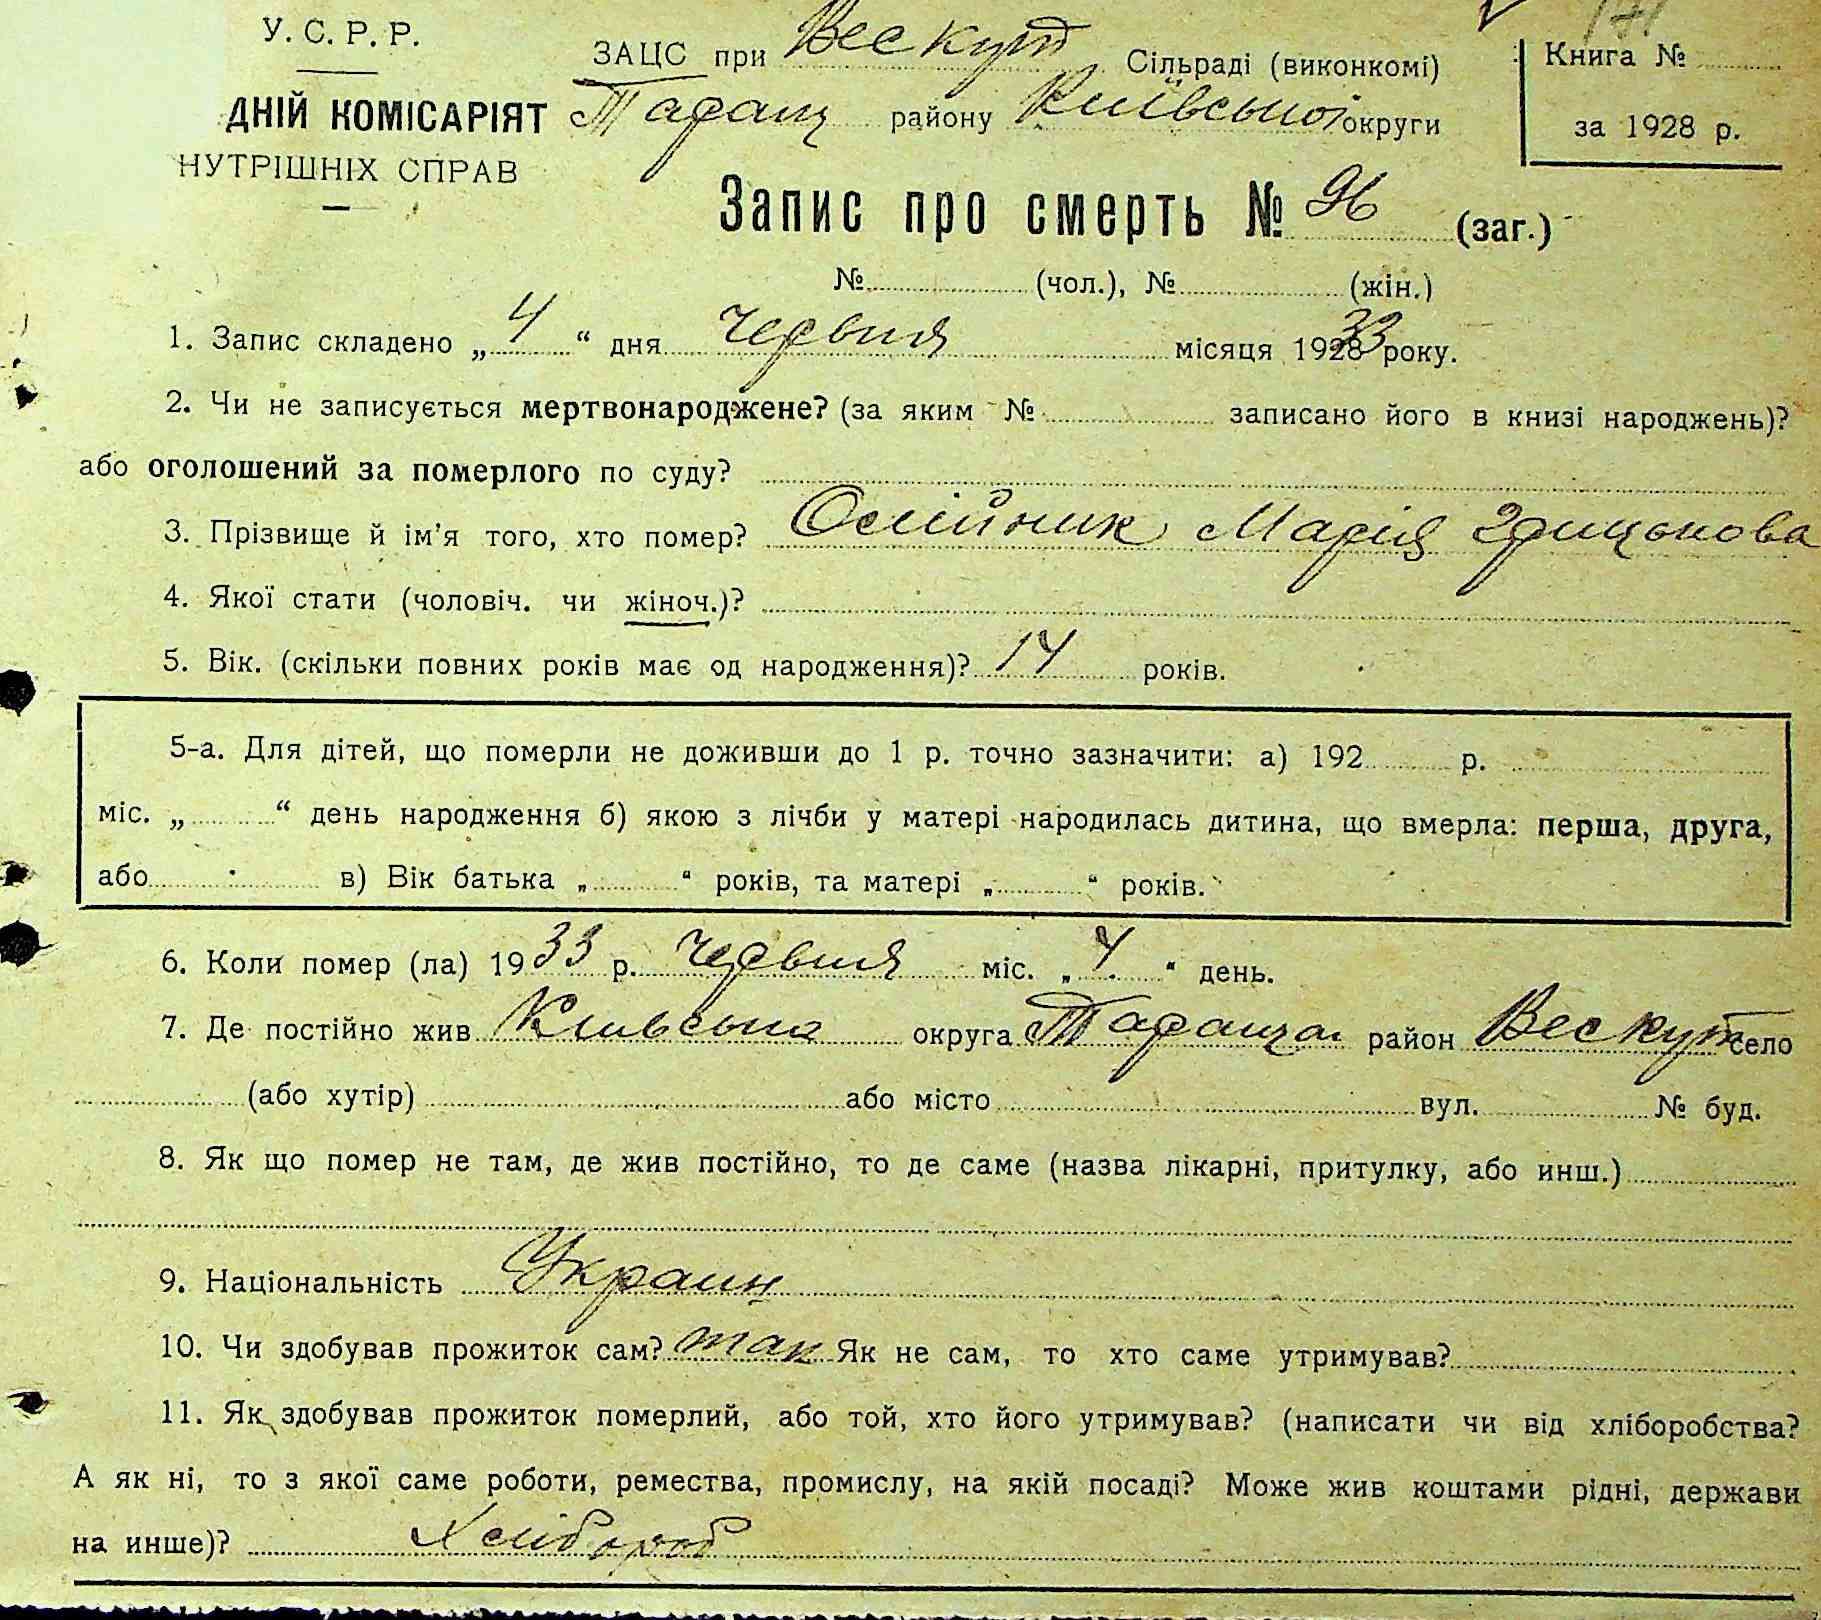 У. С. Р. Р.
ЗАЦС при Вескут Сільраді (виконкомі)
Книга №
ДНІЙ КОМІСАРІЯТ Таращ району Київської округи
за 1928 р.
НУТРІШНІХ СПРАВ
Запис про смерть № 96 (заг.)
№ (чол.), № (жін.)
1. Запис складено „ 4 “ дня червня місяця 192833 року.
2. Чи не записується мертвонароджене? (за яким № записано його в книзі народжень)?
або оголошений за померлого по суду?
3. Прізвище й ім'я того, хто помер? Олійник Марія Грицькова
4. Якої стати (чоловіч. чи жіноч.)?
5. Вік. (скільки повних років має од народження)? 14 років.
5-а. Для дітей, що померли не доживши до 1 р. точно зазначити: а) 192 р.
міс. „ “ день народження б) якою з лічби у матері народилась дитина, що вмерла: перша, друга,
або в) Вік батька „ “ років, та матері „ “ років.
6. Коли помер (ла) 1933 р. червня міс. „ 4. “ день.
7. Де постійно жив Київська округа Тараща район Вескут село
(або хутір) або місто вул. № буд.
8. Як що помер не там, де жив постійно, то де саме (назва лікарні, притулку, або инш.)
9. Національність Украин
10. Чи здобував прожиток сам? так Як не сам, то хто саме утримував?
11. Як здобував прожиток померлий, або той, хто його утримував? (написати чи від хліборобства?
А як ні, то з якої саме роботи, ремества, промислу, на якій посаді? Може жив коштами рідні, держави
на инше)? Хлібороб